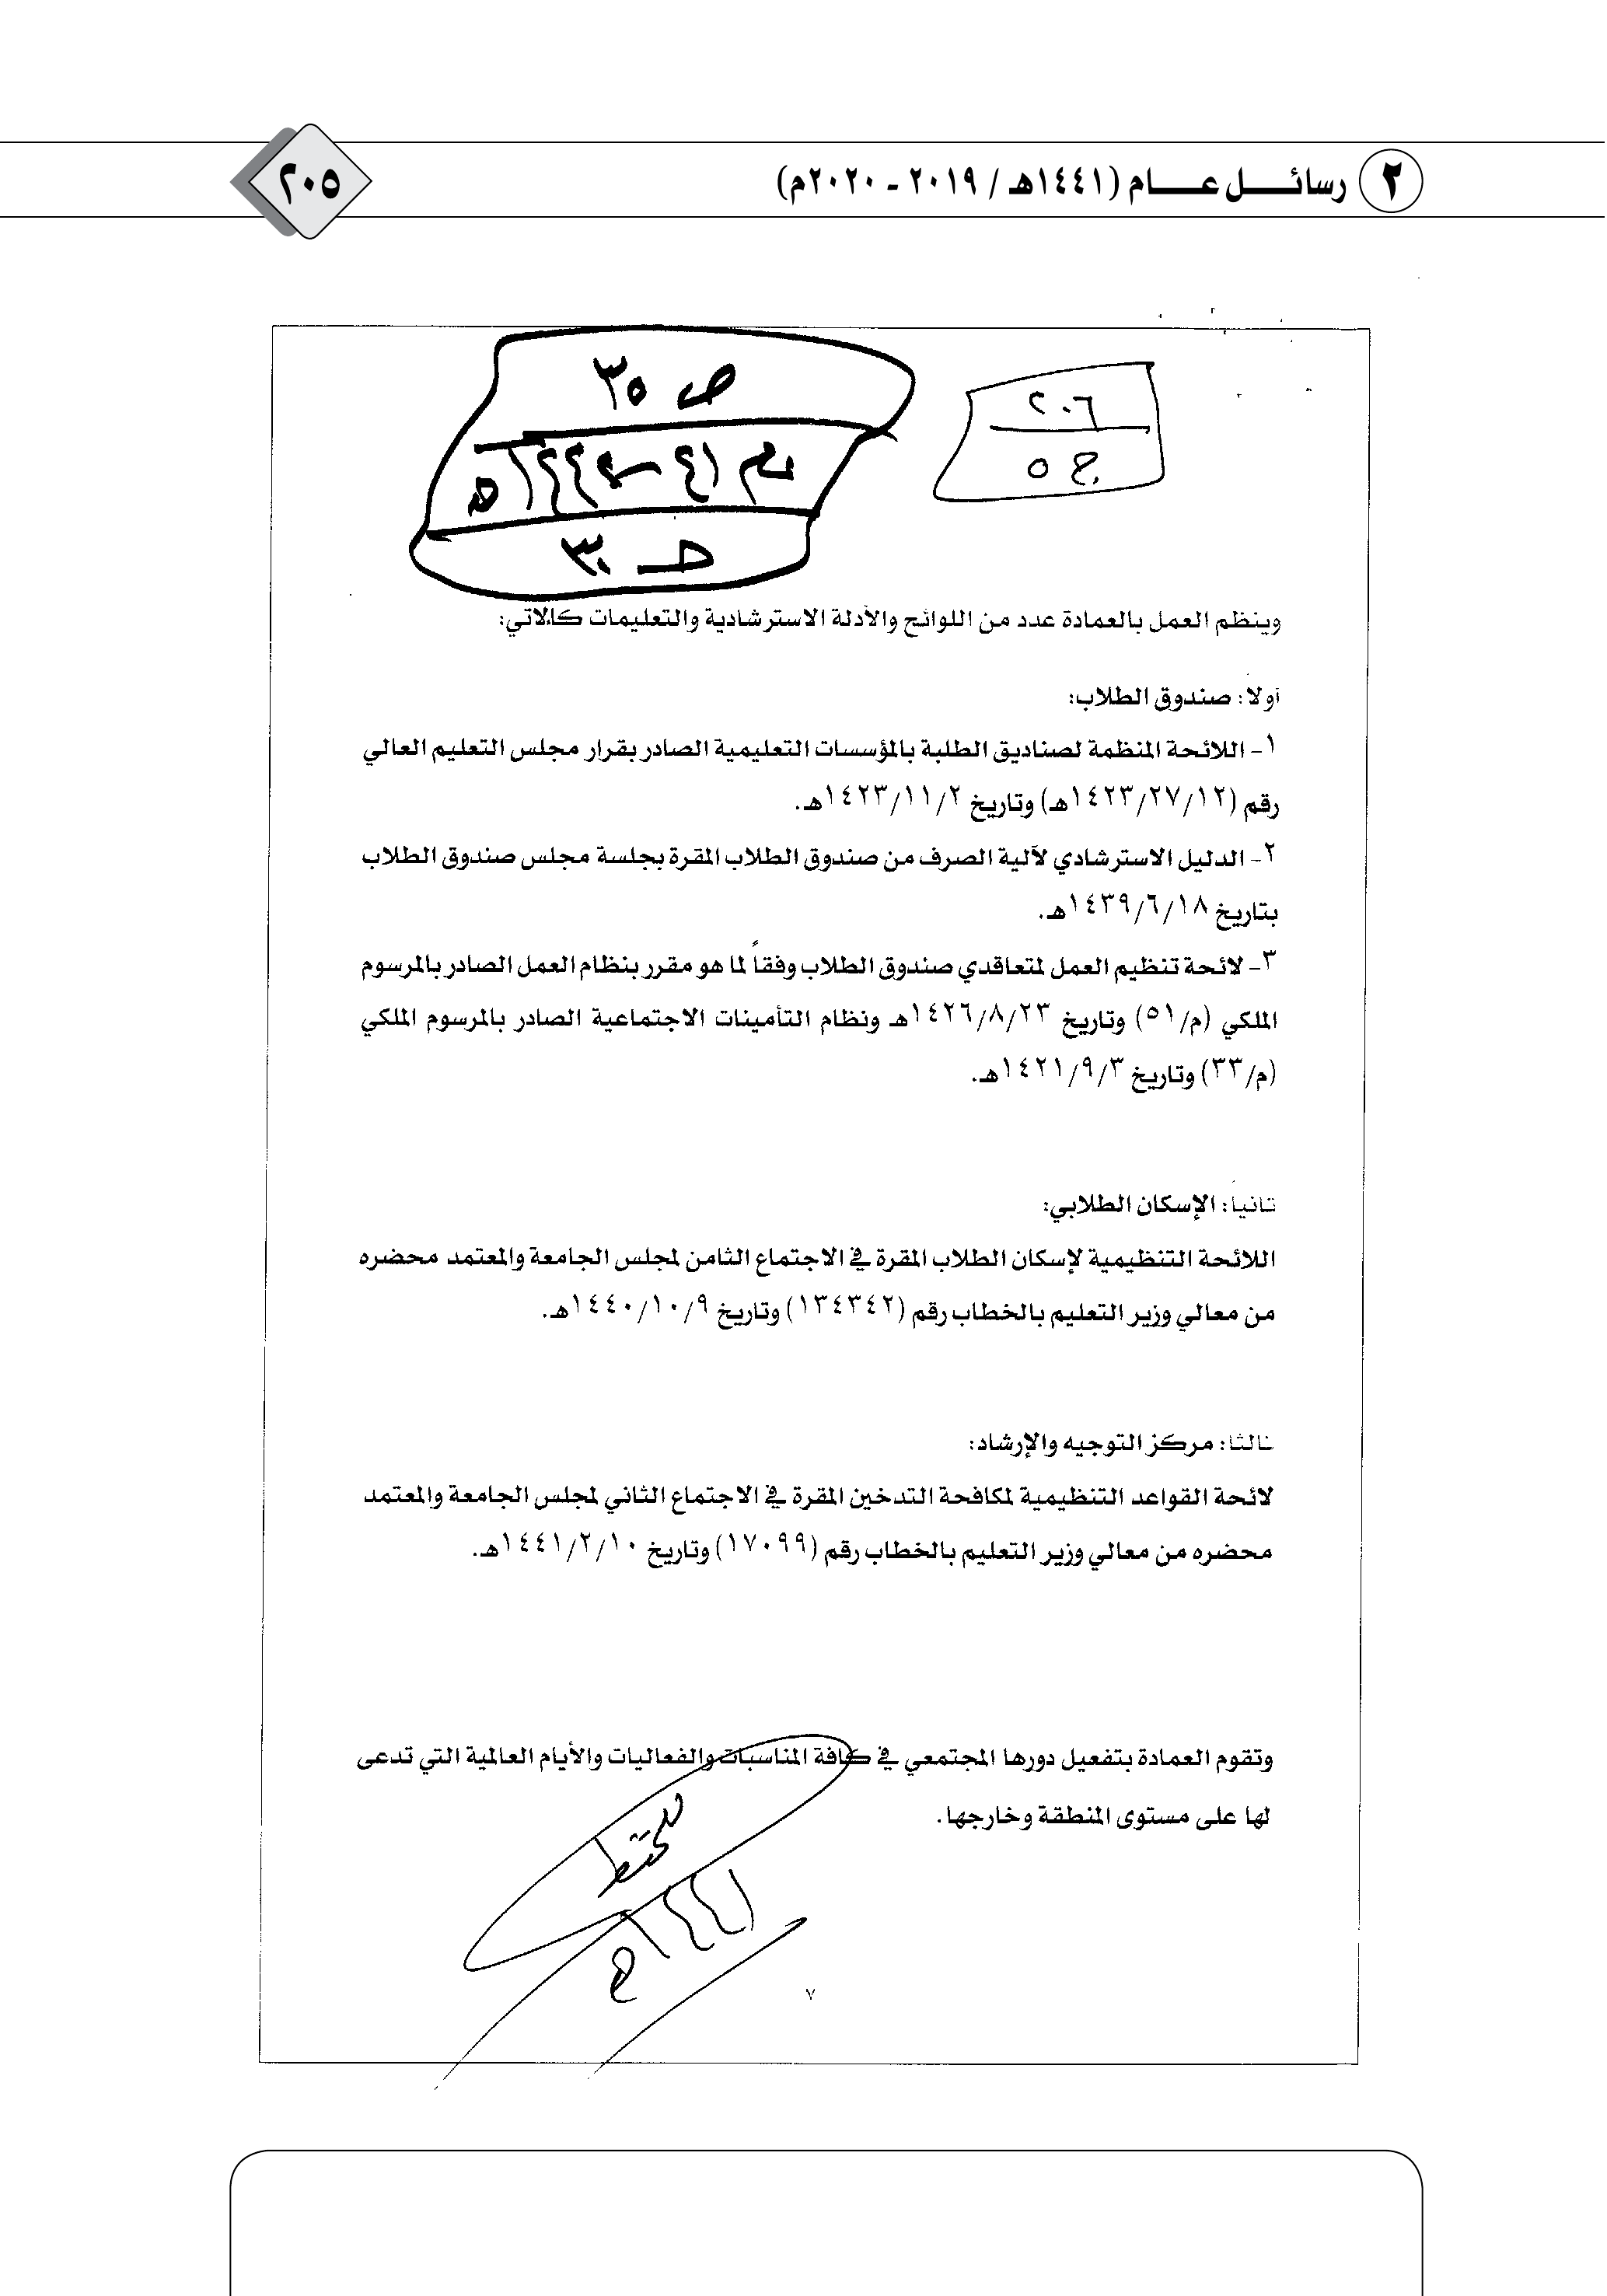 ٢ رسائــــل عـــــام (١٤٤١هـ / ٢٠١٩ - ٢٠٢٠م)
٢٠٥
٢٠٦
ج ٥
ص ٣٥
وينظم العمل بالعمادة عدد من اللوائح والأدلة الاسترشادية والتعليمات كالاتي:
أولاً: صندوق الطلاب:
١- اللائحة المنظمة لصناديق الطلبة بالمؤسسات التعليمية الصادر بقرار مجلس التعليم العالي
رقم (١٤٢٣/٢٧/١٢هـ) وتاريخ ١٤٢٣/١١/٢هـ.
٢- الدليل الاسترشادي لآلية الصرف من صندوق الطلاب المقرة بجلسة مجلس صندوق الطلاب
بتاريخ ١٤٣٩/٦/١٨هـ.
٣- لائحة تنظيم العمل لمتعاقدي صندوق الطلاب وفقاً لما هو مقرر بنظام العمل الصادر بالمرسوم
الملكي (م/٥١) وتاريخ ١٤٢٦/٨/٢٣هـ ونظام التأمينات الاجتماعية الصادر بالمرسوم الملكي
(م/٣٣) وتاريخ ١٤٢١/٩/٣هـ.
ثانياً: الإسكان الطلابي:
اللائحة التنظيمية لإسكان الطلاب المقرة في الاجتماع الثامن لمجلس الجامعة والمعتمد محضره
من معالي وزير التعليم بالخطاب رقم (١٣٤٣٤٢) وتاريخ ١٤٤٠/١٠/٩هـ.
ثالثا: مركز التوجيه والإرشاد:
لائحة القواعد التنظيمية لمكافحة التدخين المقرة في الاجتماع الثاني لمجلس الجامعة والمعتمد
محضره من معالي وزير التعليم بالخطاب رقم (١٧٠٩٩) وتاريخ ١٤٤١/٢/١٠هـ.
وتقوم العمادة بتفعيل دورها المجتمعي في كافة المناسبات والفعاليات والأيام العالمية التي تدعى
لها على مستوى المنطقة وخارجها.
٧